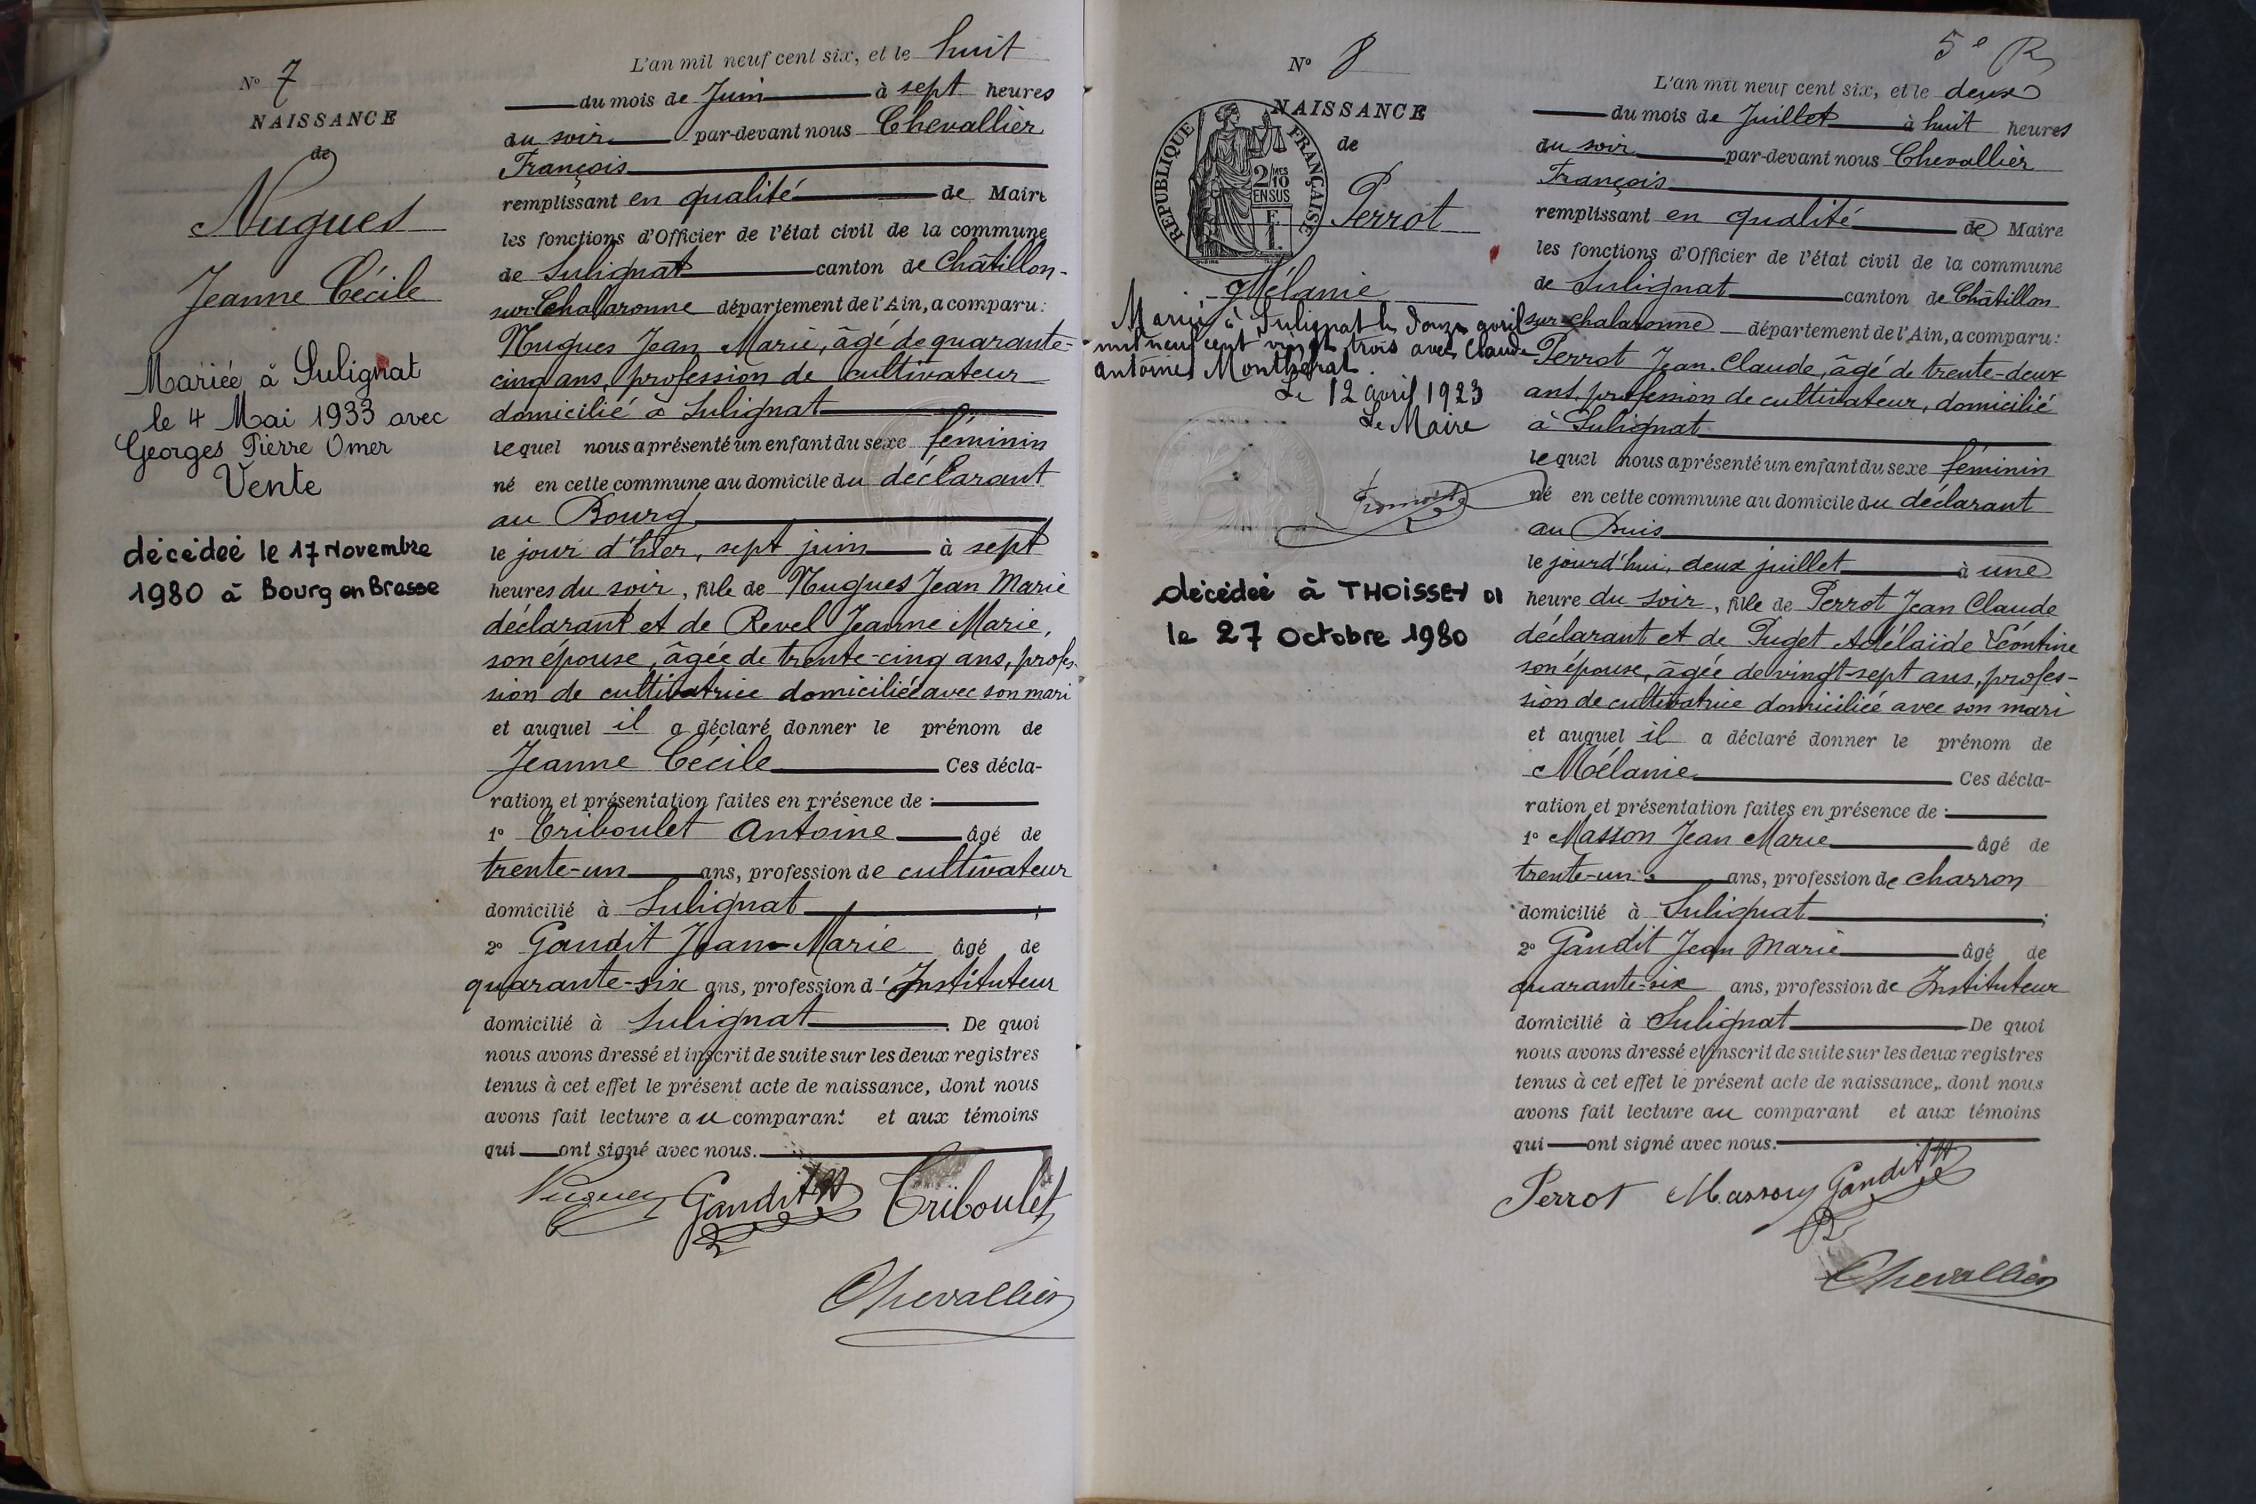 N° 7
NAISSANCE
de
Nugues
Jeanne Cécile
Mariée à Sulignat
le 4 Mai 1933 avec
Georges Pierre Omer
Vente
décédée le 17 Novembre
1980 à Bourg en Bresse
L'an mil neuf cent six, et le huit
du mois de Juin à sept heures
du soir par-devant nous Chevallier
François
remplissant en qualité de Maire
les fonctions d'Officier de l'état civil de la commune
de Sulignat canton de Châtillon-
sur Chalaronne département de l'Ain, a comparu:
Nugues Jean Marie, âgé de quarante-
cinq ans, profession de cultivateur
domicilié à Sulignat
lequel nous a présenté un enfant du sexe féminin
né en cette commune au domicile du déclarant
au Bourg
le jour d'hier, sept juin à sept
heures du soir, fille de Nugues Jean Marie
déclarant et de Revel Jeanne Marie,
son épouse, âgée de trente-cinq ans, profes-
sion de cultivatrice domiciliée avec son mari
et auquel il a déclaré donner le prénom de
Jeanne Cécile Ces décla-
ration et présentation faites en présence de :
1° Triboulet Antoine âgé de
trente-un ans, profession de cultivateur
domicilié à Sulignat ;
2° Gandit Jean-Marie âgé de
quarante-six ans, profession d'Instituteur
domicilié à Sulignat . De quoi
nous avons dressé et inscrit de suite sur les deux registres
tenus à cet effet le présent acte de naissance, dont nous
avons fait lecture au comparant et aux témoins
qui ont signé avec nous.
Nugues Gandit Triboulet
Chevallier
5e R
N° 8
NAISSANCE
de
RÉPUBLIQUE FRANÇAISE
2/10 MES
EN SUS
Perrot
Mélanie
Mariée à Sulignat le douze avril
mil neuf cent vingt trois avec Claude
Antoine Montherat.
Le 12 avril 1923
Le Maire
décédée à THOISSEY 01
le 27 Octobre 1980
L'an mil neuf cent six, et le deux
du mois de Juillet à huit heures
du soir par-devant nous Chevallier
François
remplissant en qualité de Maire
les fonctions d'Officier de l'état civil de la commune
de Sulignat canton de Châtillon
sur Chalaronne département de l'Ain, a comparu:
Perrot Jean Claude, âgé de trente-deux
ans, profession de cultivateur, domicilié
à Sulignat
lequel nous a présenté un enfant du sexe féminin
né en cette commune au domicile du déclarant
au Buis
le jourd'hui, deux juillet à une
heure du soir, fille de Perrot Jean Claude
déclarant et de Puget Adélaïde Léontine
son épouse, âgée de vingt-sept ans, profes-
sion de cultivatrice domiciliée avec son mari
et auquel il a déclaré donner le prénom de
Mélanie Ces décla-
ration et présentation faites en présence de :
1° Masson Jean Marie âgé de
trente-un ans, profession de charron
domicilié à Sulignat ;
2° Gandit Jean Marie âgé de
quarante-six ans, profession de Instituteur
domicilié à Sulignat De quoi
nous avons dressé et inscrit de suite sur les deux registres
tenus à cet effet le présent acte de naissance, dont nous
avons fait lecture au comparant et aux témoins
qui ont signé avec nous.
Perrot Masson Gandit
Chevallier